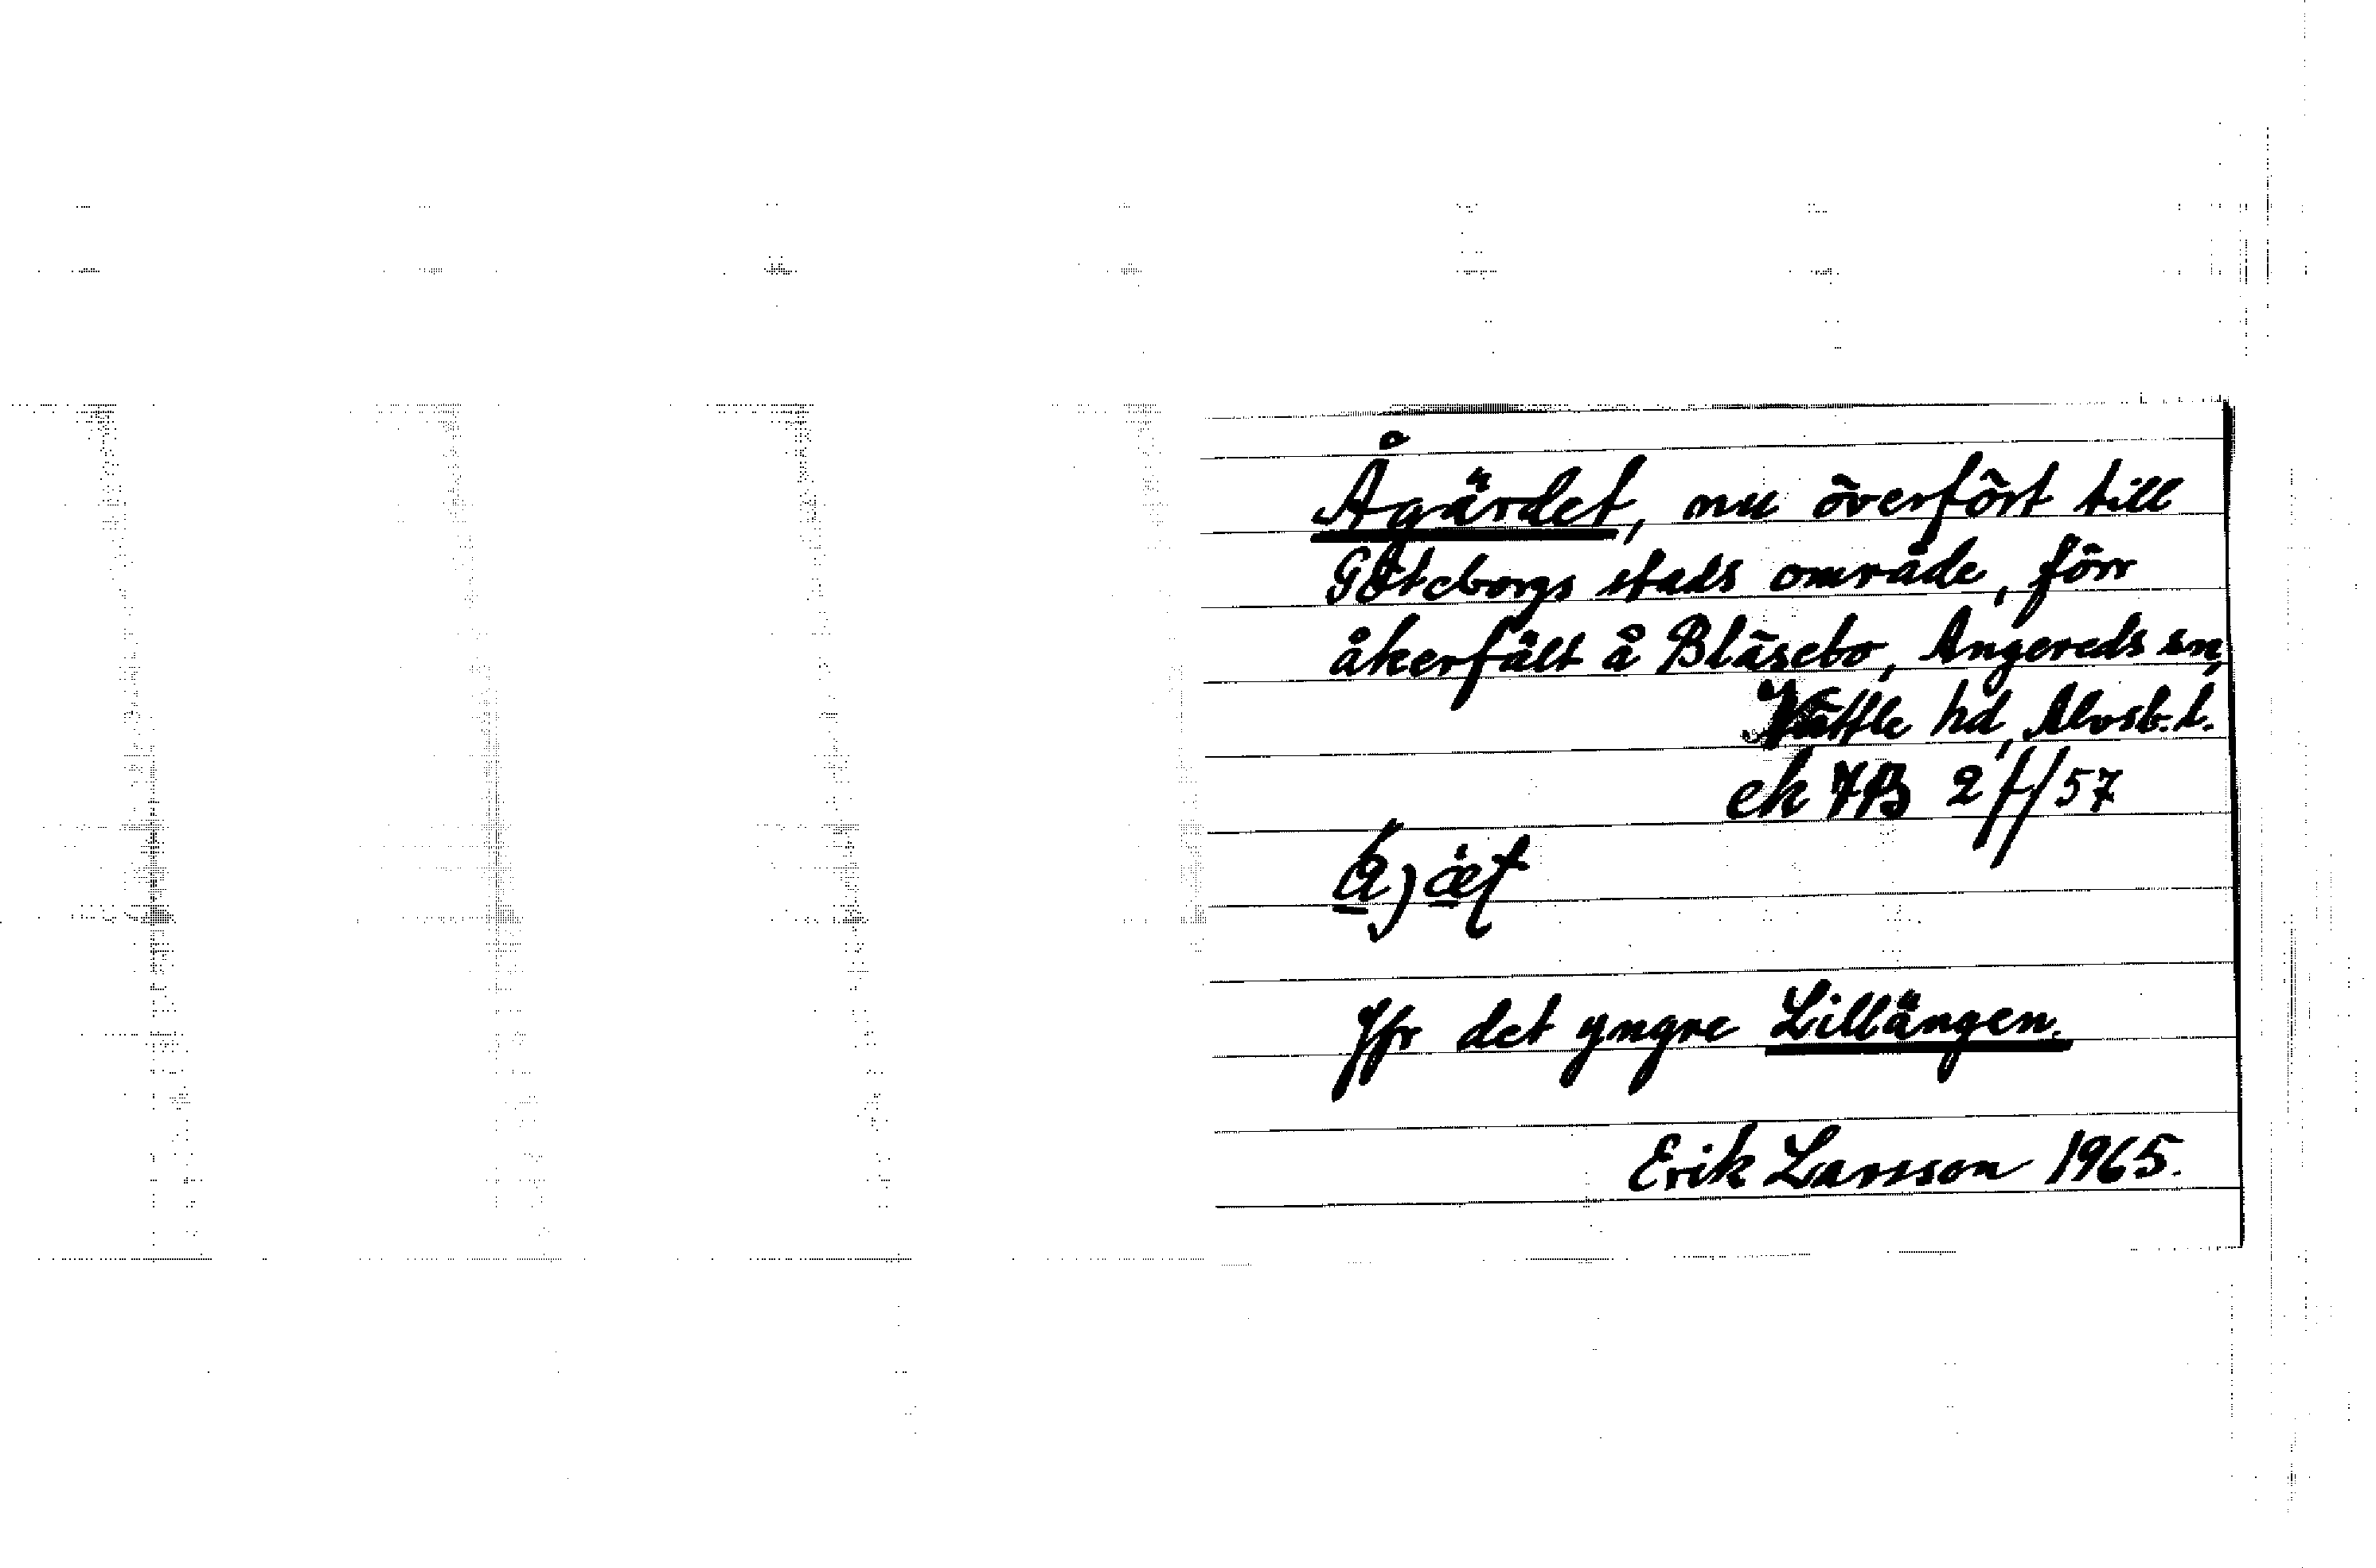 Ågärdet, nu överfört till
Göteborgs stads område, förr
åkerfält å Blåsebo, Angereds sn,
Vättle hd, Älvsb. l.
ek 7B 2 f/57
Jfr det yngre Lillängen.
Erik Larsson 1965.